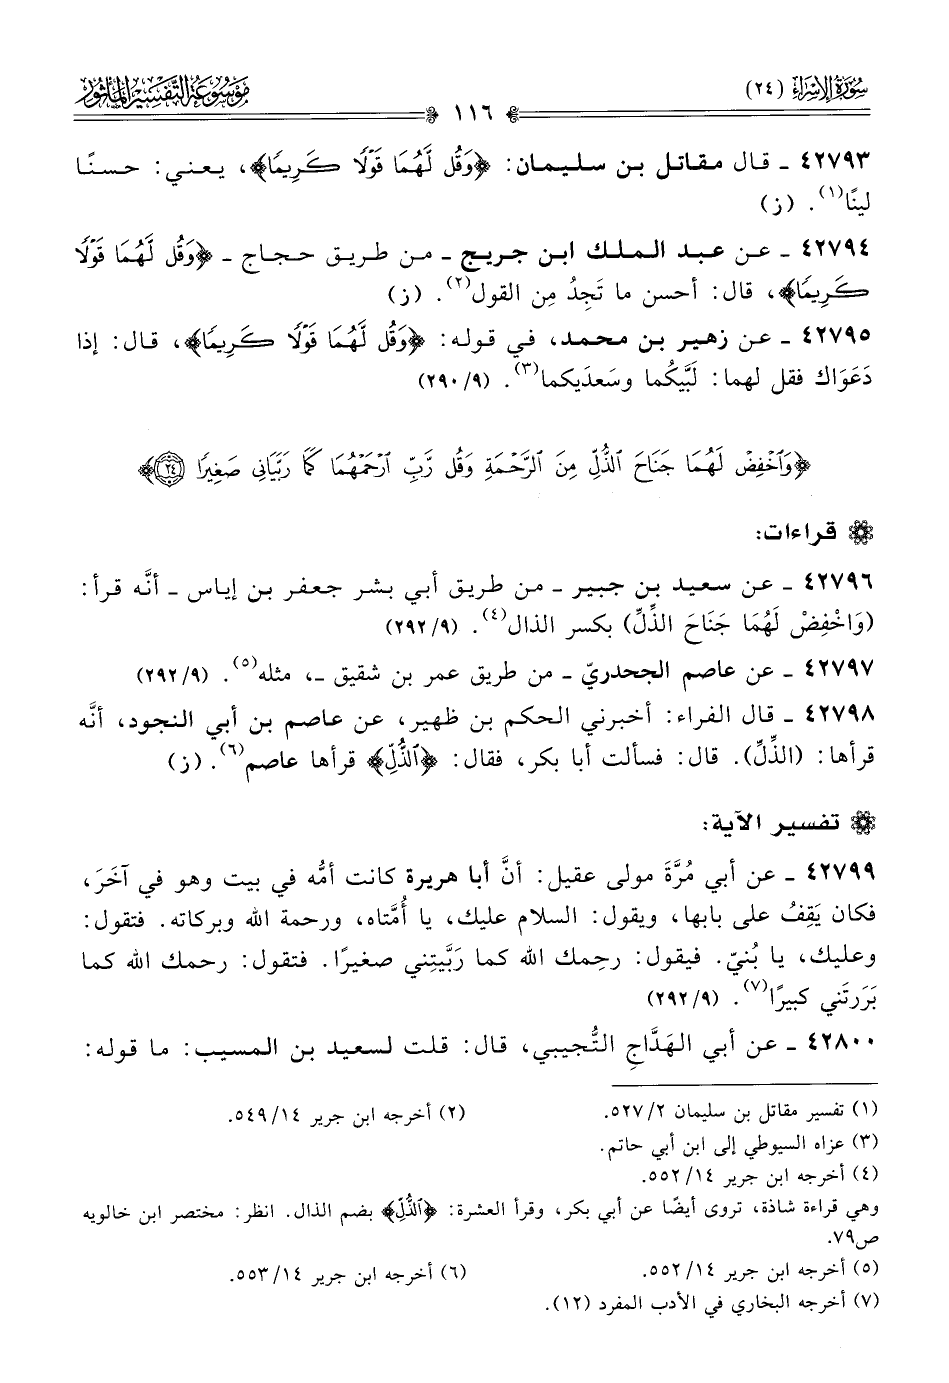 سُورَةُ الإِسْرَاءِ (٢٤)
١١٦
مَوْسُوعَةُ التَّفْسِيرِ المَأْثُورِ
٤٢٧٩٣ ـ قال مقاتل بن سليمان: ﴿وَقُل لَّهُمَا قَوْلًا كَرِيمًا﴾، يعني: حسنًا
لينًا(١). (ز)
٤٢٧٩٤ ـ عن عبد الملك ابن جريج ـ من طريق حجاج ـ ﴿وَقُل لَّهُمَا قَوْلًا
كَرِيمًا﴾، قال: أحسن ما تَجِدُ مِن القول(٢). (ز)
٤٢٧٩٥ ـ عن زهير بن محمد، في قوله: ﴿وَقُل لَّهُمَا قَوْلًا كَرِيمًا﴾، قال: إذا
دَعَوَاكَ فقل لهما: لَبَّيكُما وسَعدَيكما(٣). (٢٩٠/٩)
﴿وَٱخْفِضْ لَهُمَا جَنَاحَ ٱلذُّلِّ مِنَ ٱلرَّحْمَةِ وَقُل رَّبِّ ٱرْحَمْهُمَا كَمَا رَبَّيَانِي صَغِيرًا ٢٤﴾
قراءات:
٤٢٧٩٦ ـ عن سعيد بن جبير ـ من طريق أبي بشر جعفر بن إياس ـ أنَّه قرأ:
(وَاخْفِضْ لَهُمَا جَنَاحَ الذِّلِّ) بكسر الذال(٤). (٢٩٢/٩)
٤٢٧٩٧ ـ عن عاصم الجحدريّ ـ من طريق عمر بن شقيق ـ، مثله(٥). (٢٩٢/٩)
٤٢٧٩٨ ـ قال الفراء: أخبرني الحكم بن ظهير، عن عاصم بن أبي النجود، أنَّه
قرأها: (الذِّلِّ). قال: فسألت أبا بكر، فقال: ﴿ٱلذُّلِّ﴾ قرأها عاصم(٦). (ز)
تفسير الآية:
٤٢٧٩٩ ـ عن أبي مُرَّةَ مولى عقيل: أنَّ أبا هريرة كانت أمُّه في بيت وهو في آخَرَ،
فكان يَقِفُ على بابها، ويقول: السلام عليك، يا أُمَّتاه، ورحمة الله وبركاته. فتقول:
وعليك، يا بُنيّ. فيقول: رحِمك الله كما رَبَّيتِني صغيرًا. فتقول: رحمك الله كما
بَرَرتَني كبيرًا(٧). (٢٩٢/٩)
٤٢٨٠٠ ـ عن أبي الهَدَّاجِ التُّجيبي، قال: قلت لسعيد بن المسيب: ما قوله:
(١) تفسير مقاتل بن سليمان ٥٢٧/٢. (٢) أخرجه ابن جرير ٥٤٩/١٤.
(٣) عزاه السيوطي إلى ابن أبي حاتم.
(٤) أخرجه ابن جرير ٥٥٢/١٤.
وهي قراءة شاذة، تروى أيضًا عن أبي بكر، وقرأ العشرة: ﴿ٱلذُّلِّ﴾ بضم الذال. انظر: مختصر ابن خالويه
ص٧٩.
(٥) أخرجه ابن جرير ٥٥٢/١٤. (٦) أخرجه ابن جرير ٥٥٣/١٤.
(٧) أخرجه البخاري في الأدب المفرد (١٢).